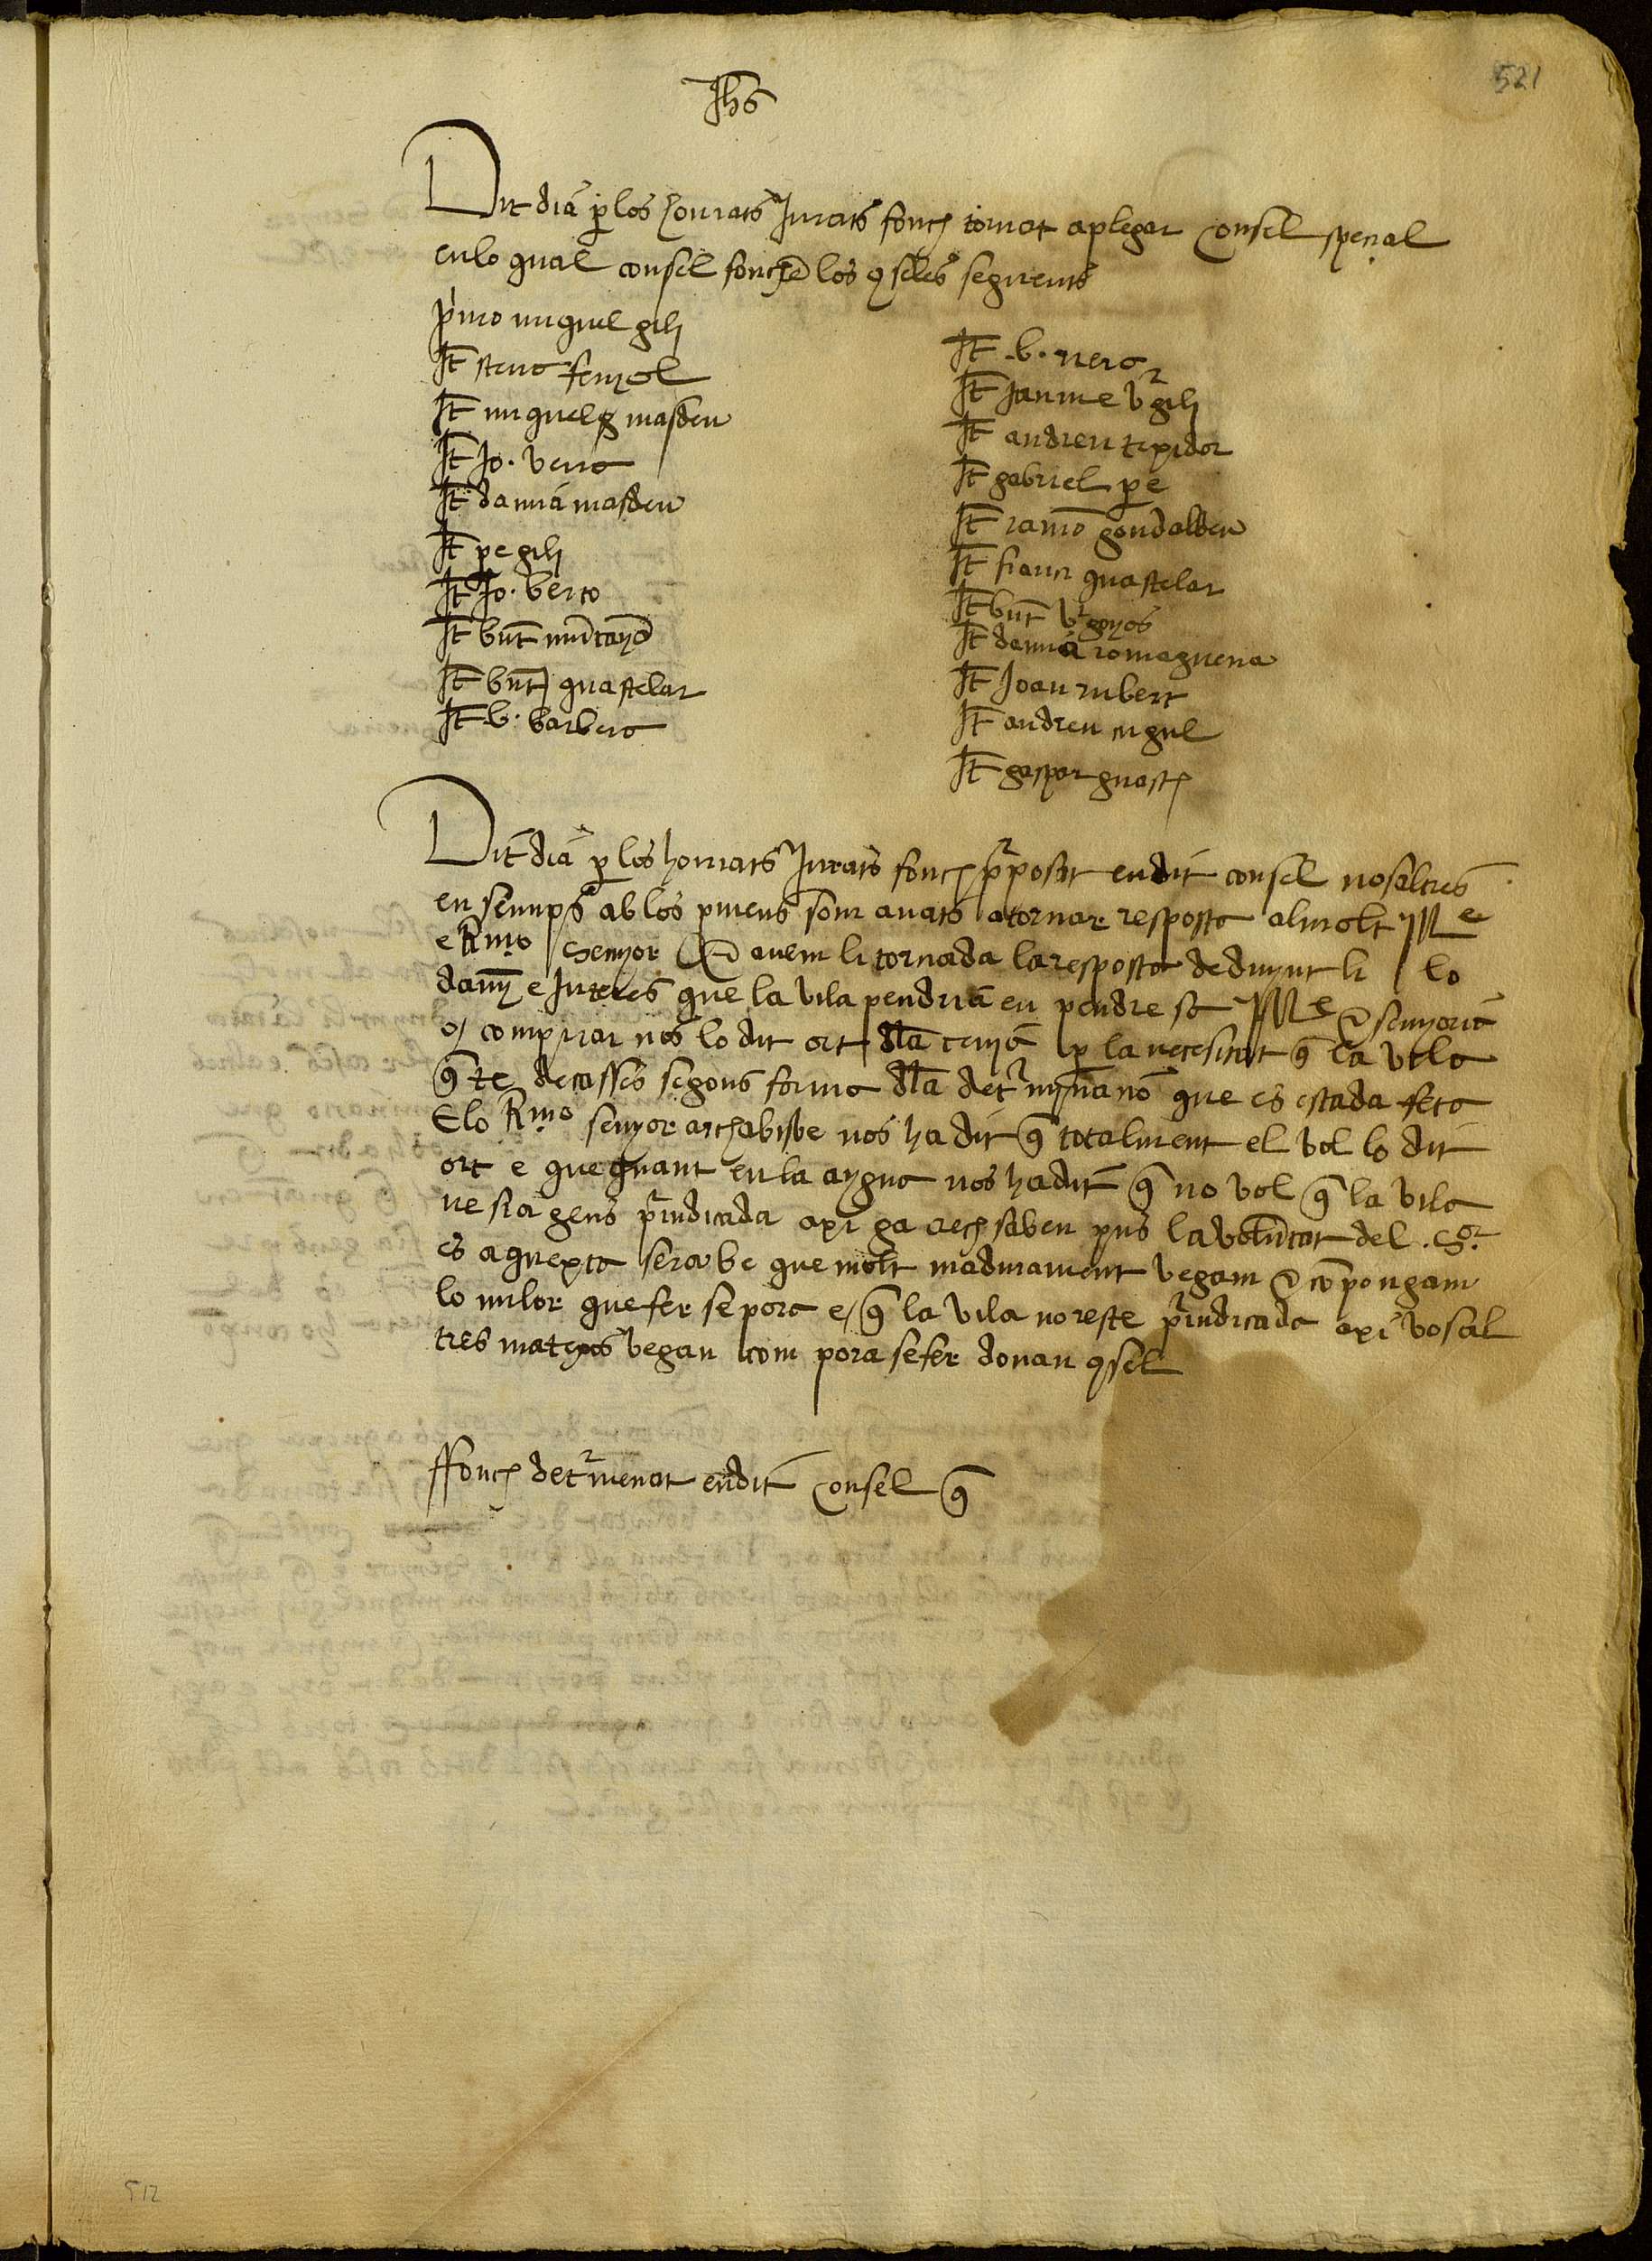 521
Jhs
Dit dia p los honrats Jurats fonch tornat aplegar consel special
en lo qual consel fonch los qseles seguents
pimo miquel gili
It steve fenyol
It miquel g masdeu
It Jo. vero
It damia masdeu
It pe gili
It Jo. berto
It bnt muntayo
It bnt guastelar
It b. barbero
It b. vero
It Jaume v gili
It andreu texidor
It gabriel pe
It ramo gondalbeu
It franci guastelar
It bnt
It damia romaguera
It Joan rubert
It andreu cugul
It gaspar guasch
Dit dia p los honrats Jurats fonch pposat en dit consel nosaltres
en semps ab los pmens som anats a tornar resposta al molt Mc
e Rmo senyor e avem li tornada la resposta deduynt li lo
dany e Interes que la vila pendria en pendre sa Mc e senyoria
o comprar nos lo dit ort dla cenya p la necesitat q la vila
q te de casses segons forma dla detminano que es estada feta
E lo Rmo senyor archabisbe nos ha dit q totalment el vol lo dit
ort e que quant en la aygua nos ha dit q no vol q la vila
ne sia gens piudicada axi ga vech saben pus la voluntat del .sor.
es aquexta sera be que molt madurament vegam e compongam
lo milor que fer se pora e q la vila no reste piudicada axi vosal
tres matexos vegan com pora se fer donan qsel
ffonch detmenat en dit consel q
512